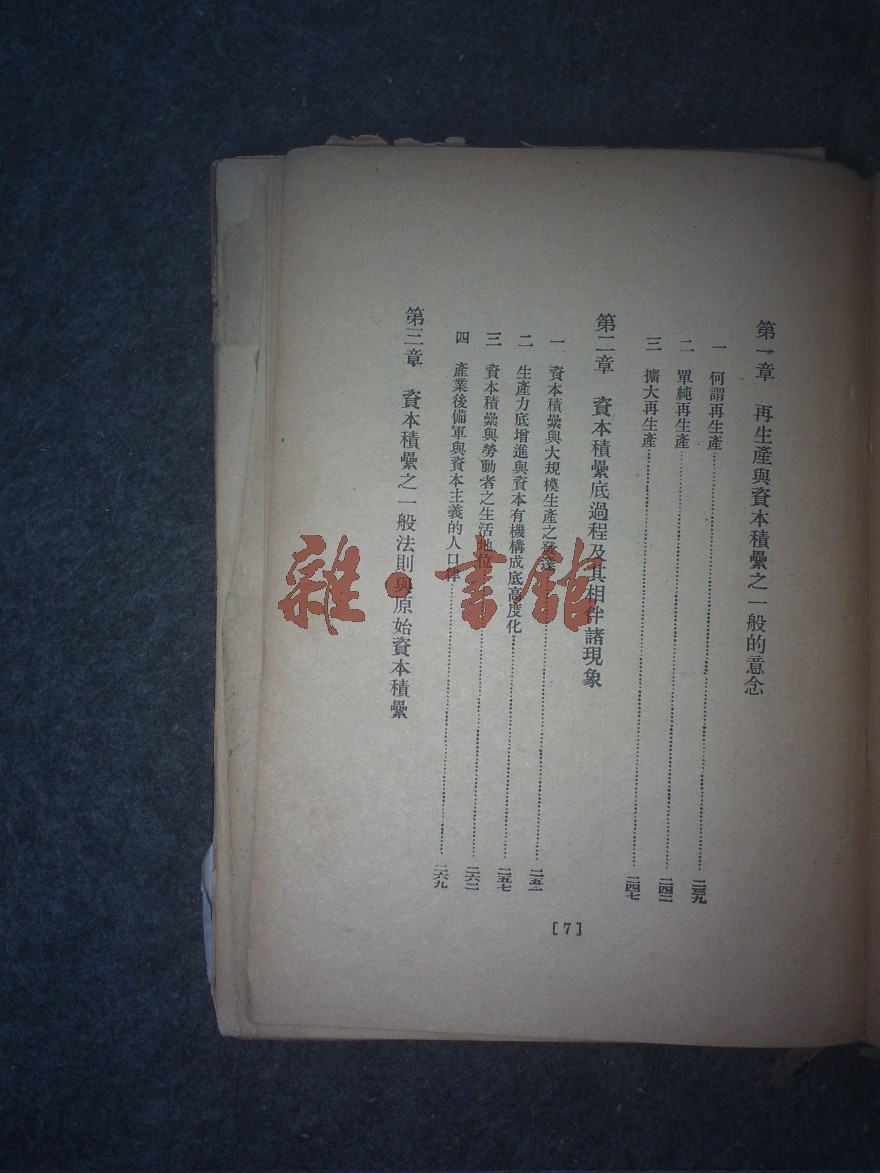 第一章 再生產與資本積纍之一般的意念
一 何謂再生產……二三九
二 單純再生產……二四二
三 擴大再生產……二四七
第二章 資本積纍底過程及其相伴諸現象
一 資本積纍與大規模生產之發達……二五二
二 生產力底增進與資本有機構成底高度化……二五七
三 資本積纍與勞動者之生活地位……二六二
四 產業後備軍與資本主義的人口律……二六九
第三章 資本積纍之一般法則與原始資本積纍
[7]
雜·書館